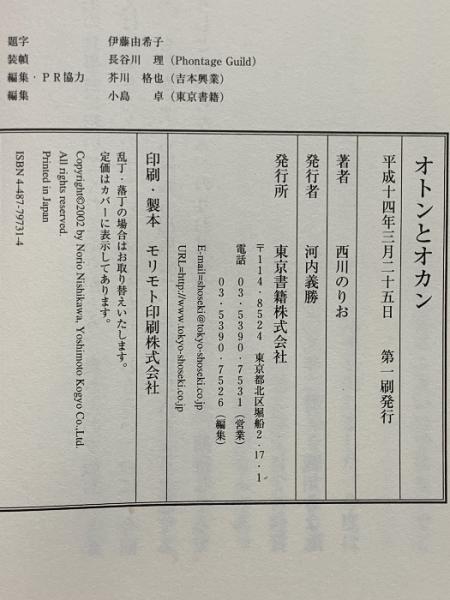 題字 伊藤由希子
装幀 長谷川 理(Phontage Guild)
編集・PR協力 芥川 格也(吉本興業)
編集 小島 卓(東京書籍)
オトンとオカン
平成十四年三月二十五日 第一刷発行
著者 西川のりお
発行者 河内義勝
発行所 東京書籍株式会社
〒114-8524 東京都北区堀船2-17-1
電話 03-5390-7531(営業)
03-5390-7526(編集)
E-mail=shoseki@tokyo-shoseki.co.jp
URL=http://www.tokyo-shoseki.co.jp
印刷・製本 モリモト印刷株式会社
乱丁・落丁の場合はお取り替えいたします。
定価はカバーに表示してあります。
Copyright©2002 by Norio Nishikawa, Yoshimoto Kogyo Co.,Ltd.
All rights reserved.
Printed in Japan
ISBN 4-487-79731-4